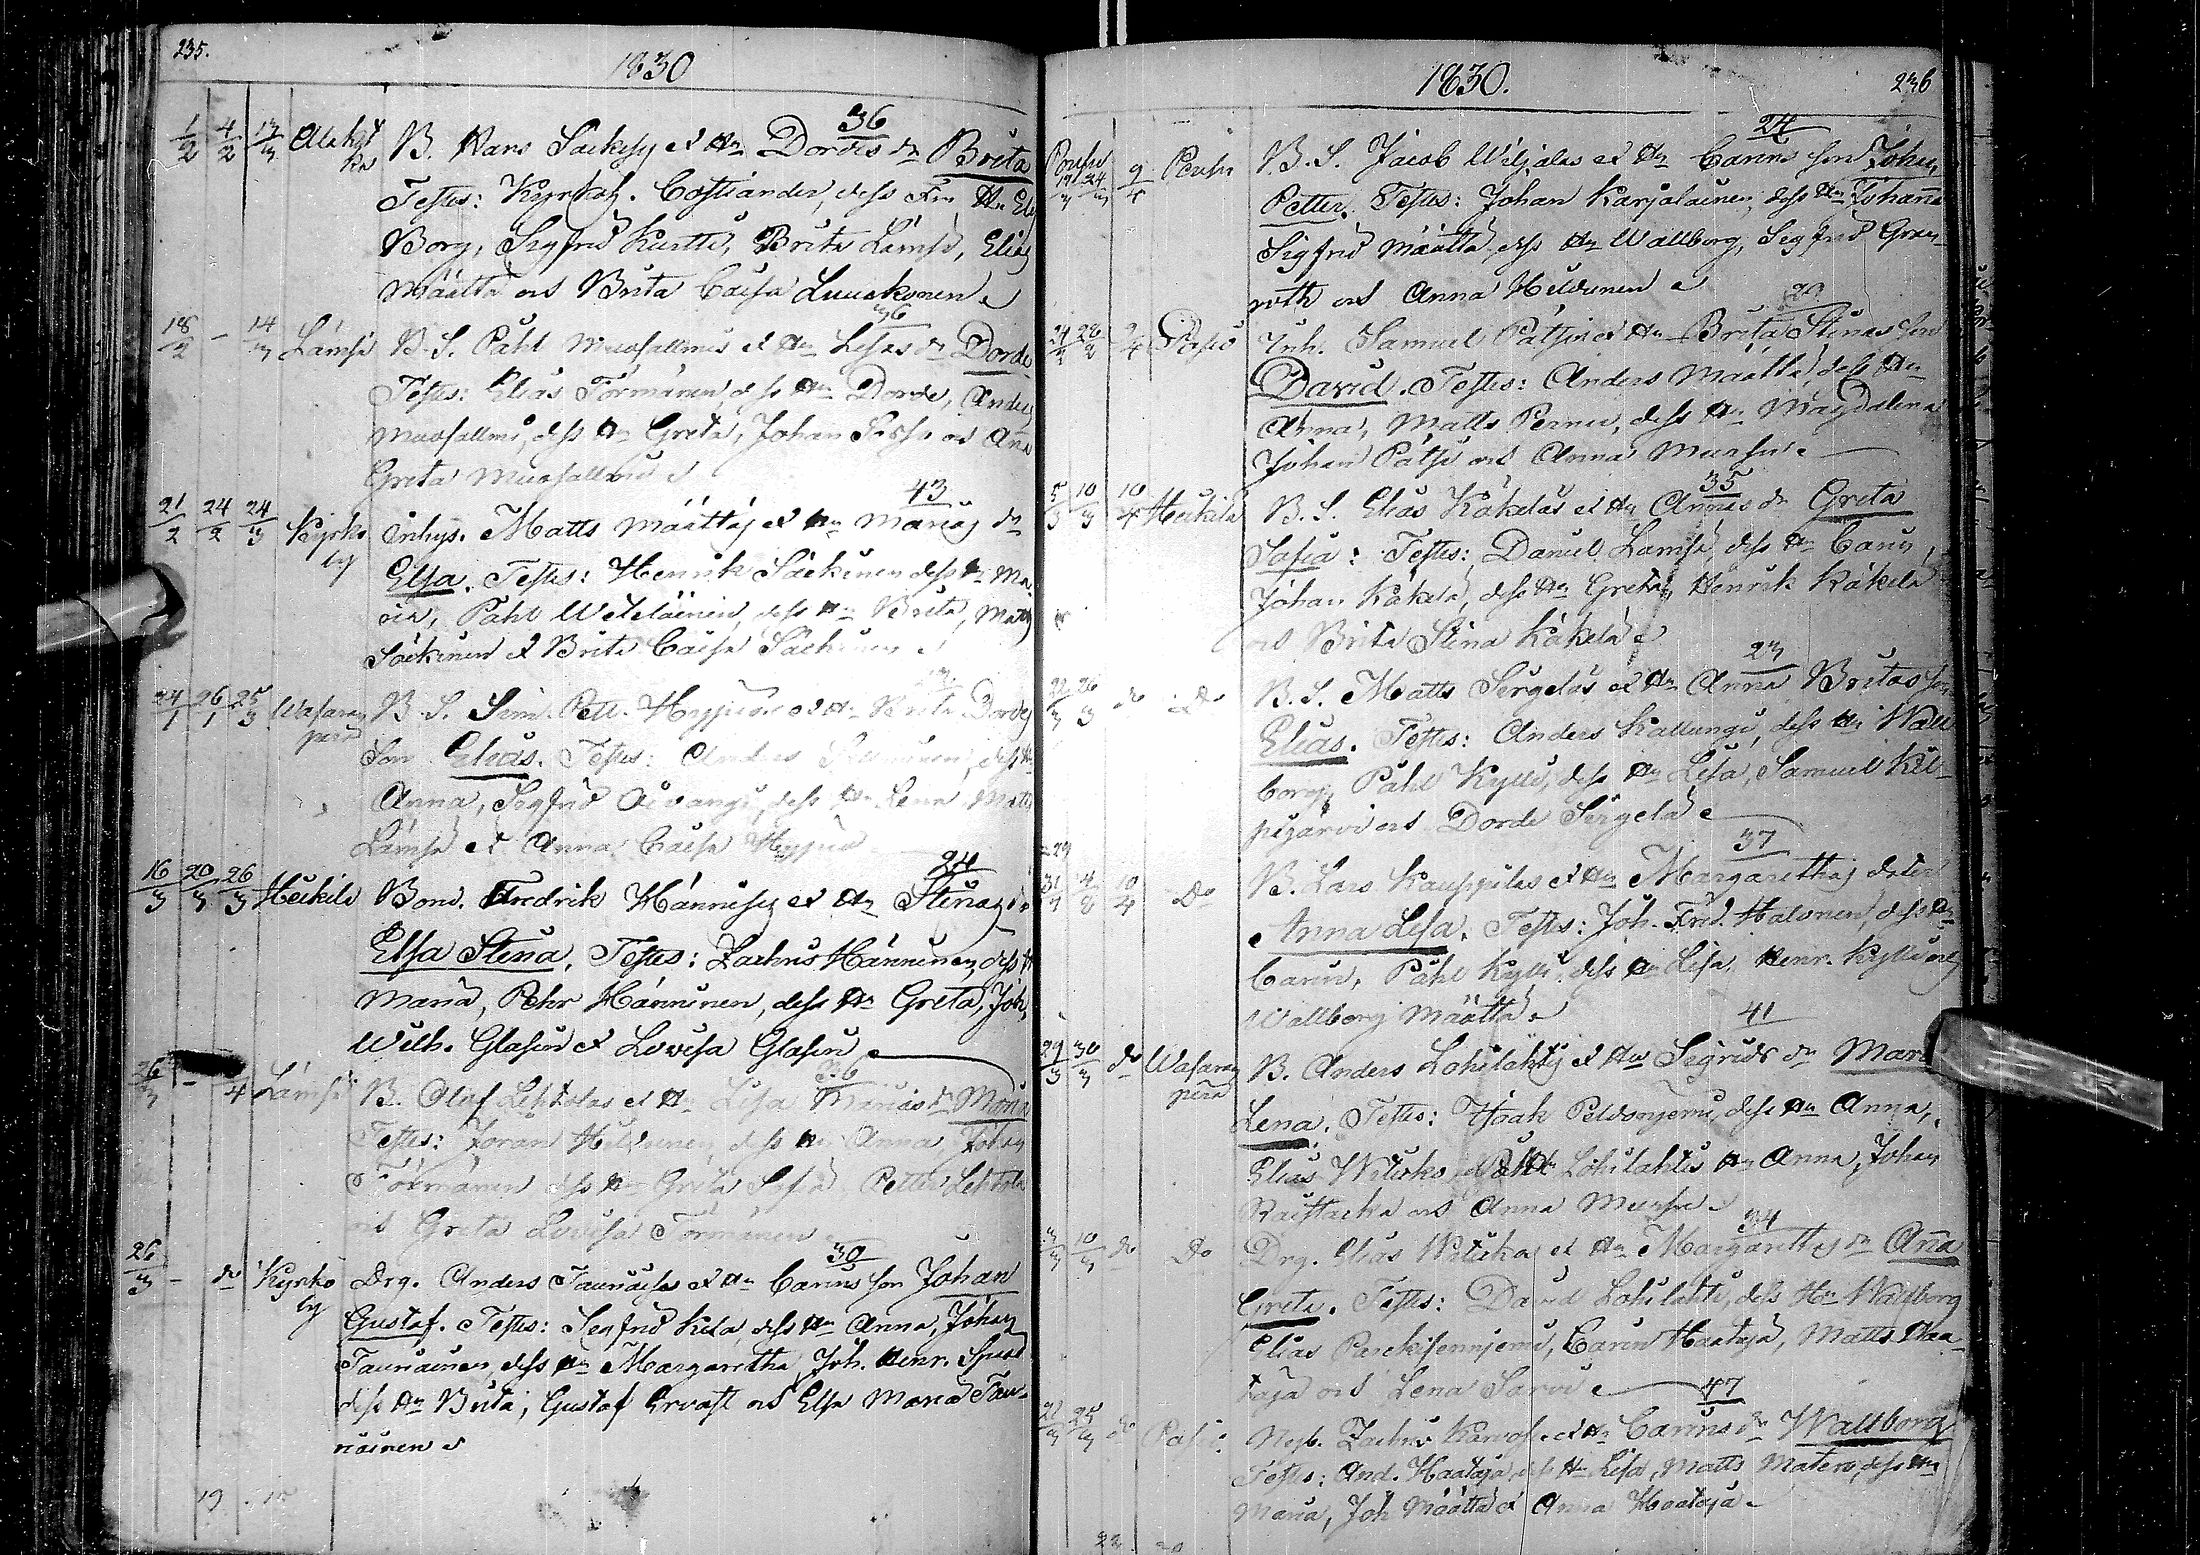 235.
1830
36
1/2 4/2 13/3 Alakyl B. Hans Säckisys et Hu Dordes dr Brita
kä Testes: Kyrkoh. Costiander, dess Fru
Borg, Sigfrid Kurtti, Brita Lämsä, Elias
Määttä och Brita Caisa Luuckonen
36
18/2 - 14/3 Lämsä B. S. Påhl Mursallmis et Hu Lisas dr Dorde
Testes: Elias Törmänen dess Hu Dorde, Anders
Mursallmi, dess Hu Greta, Johan och Ana
Greta Mursallmi
43
21/2 24/2 24/3 Kyrko Inhys. Matts Määttäs et Hu Marias dr
by Elsa. Testes: Henrik Säckinen dess Hu Ma-
ria, Påhl Weteläinen, dess Hu Brita, Matts
Säckinen et Brita Caisa Säckinen
24/1 26/1 25/3 Wasaran B. S. Sim. Pett. Hyppiös et Hu Brita Dordes
perä Son Elias. Testes: Anders dess Hu
Anna, Sigfrid Aiwangi, dess Hu Lena, Matts
Lämsä et Anna Caisa Hyppiö
24
16/3 20/3 26/3 Heikilä Bond. Fredrik Hännisys et Hu Stinas dr
Elsa Stina. Testes: Zachris Hänninen, dess H
Maria, Pehr Hänninen, dess Hu Greta, Joh.
Wilh. Glasun et Lovisa Glasun
36
26/3 - /4 Lämsä B. Olof Lehtolas et Hu Lisa Marias dr Maria
Testes: Göran Hildunen, dess Hu Anna, Johan
Törmänen dess Hu Greta Sofia, Petter Lehtola
och Greta Lovisa Törmänen
30
26/3 - do Kyrko Drg. Anders Tauriaises et Hu Carins son Johan
by Gustaf. Testes: Sigfrid Kela, dess Hu Anna, Johan
Tauriainen, dess Hu Margaretha, Joh. Henr.
dess Hu Brita, Gustaf Ervast och Elsa Maria Tau-
riainen
19
1830.
236
24
19/3 24/3 9/4 Pernu B. S. Jacob Wiljalas et Hu Carins son Johan
Petter. Testes: Johan Karjalainen, dess Hu Johanna
Sigfrid Määttä, dess Hu Wallborg, Sigfrid Gran-
roth och Anna Hildunen
29
24/2 28/2 9/4 Posio Inh. Samuel Pätsis et Hu Brita Stinas son
David. Testes: Anders Määttä, dess Hu
Anna, Matts Pernu, dess Hu Magdalena
Johan Pätsi och Anna Mursu
35
5/3 10/3 10/4 Heikilä B. S. Elias Käkeläs et Hu Annas dr Greta
Safia. Testes: Daniel Lämsä, dess Hu Carin,
Johan Käkelä, dess Hu Greta, Henrik Käkelä
och Brita Stina Käkelä
23
22/3 26/3 do Do B. S. Matts Sirgeläs et Hu Anna Britas son
Elias. Testes: Anders Kallungi, dess Hu Wall
borg, Påhl Kylli, dess Hu Lisa, Samuel Kil-
pijärvi och Dorde Sirgelä
37
31/7 4/8 10/4 Do B. Lars Kauppilas et Hu Margarethas doter
Anna Lisa. Testes: Joh. Fred. Halonen, dess Hu
Carin, Påhl Kylli, dess Hu Lisa, Henr. Kylli och
Wallborg Määttä
41
29/3 30/3 do Wasaran B. Anders Lohilahtis et Hu Sigrids dr Maria
perä Lena. Testes: Isak Peldoniemi, dess Hu Anna,
Elias Wiliska, Lohilahtis Hu Anna, Johan
och Anna Mursu
34
3/3 10/3 do Do Drg. Elias Wiliskas et Hu Margarethas dr Ana
Greta. Testes: David Lohilahti, dess Hu Wallborg
Elias Parckisenniemi, Carin Haataja, Matts Haa-
taja och Lena Sarvi
47
21/3 25/3 do Posio Nyb. Zachris et Hu Carins dr Wallborg
Testes: And. Haataja, dess Hu Lisa, Matts Matero, dess Hu
Maria, Joh Määttä et Anna Haataja